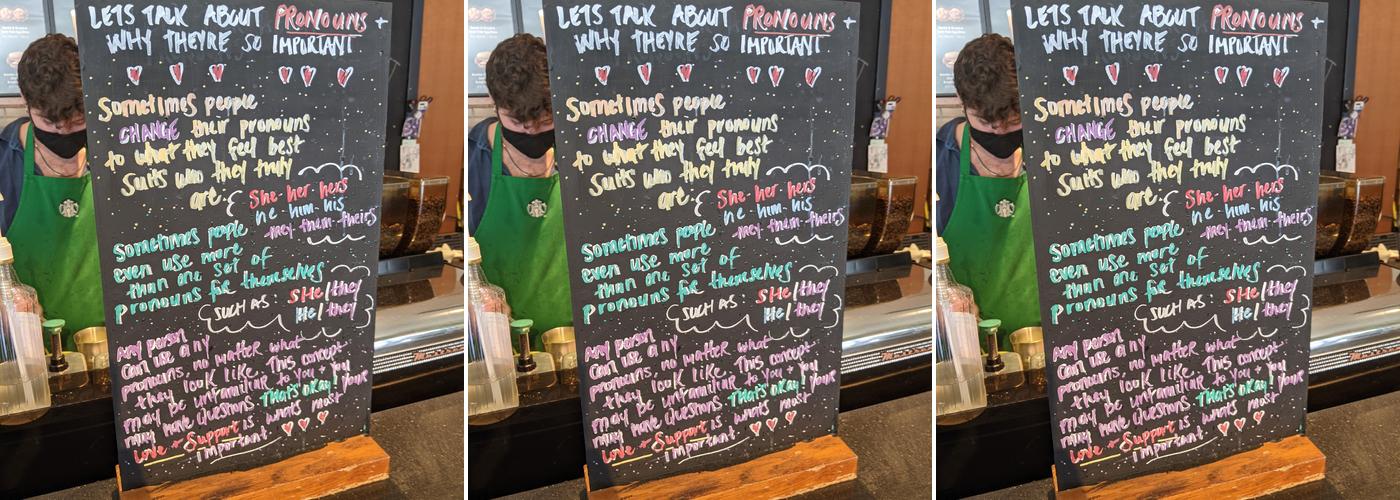 LETS TALK ABOUT PRONOUNS +
WHY THEYRE SO IMPORTANT
Sometimes people
CHANGE their pronouns
to what they feel best
Suits who they truly
are { She·her·hers
he·him·his
they·them·theirs
Sometimes people
even use more
than one set of
pronouns for themselves
such as: SHe/they
He/they
Any person
can use any
pronouns, no matter what
they look like. This concept
may be unfamiliar to you + you
may have questions THATS OKAY! Your
Love + Support is whats most
important
LETS TALK ABOUT PRONOUNS +
WHY THEYRE SO IMPORTANT
Sometimes people
CHANGE their pronouns
to what they feel best
Suits who they truly
are { She·her·hers
he·him·his
they·them·theirs
Sometimes people
even use more
than one set of
pronouns for themselves
such as: SHe/they
He/they
Any person
can use any
pronouns, no matter what
they look like. This concept
may be unfamiliar to you + you
may have questions THATS OKAY! Your
Love + Support is whats most
important
LETS TALK ABOUT PRONOUNS +
WHY THEYRE SO IMPORTANT
Sometimes people
CHANGE their pronouns
to what they feel best
Suits who they truly
are { She·her·hers
he·him·his
they·them·theirs
Sometimes people
even use more
than one set of
pronouns for themselves
such as: SHe/they
He/they
Any person
can use any
pronouns, no matter what
they look like. This concept
may be unfamiliar to you + you
may have questions THATS OKAY! Your
Love + Support is whats most
important